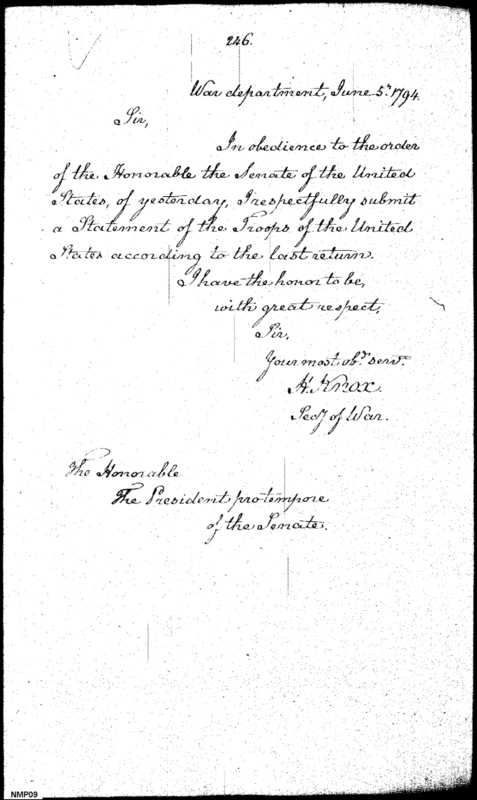 246.
War department, June 5th 1794.
Sir,
In obedience to the order
of the Honorable the Senate of the United
States, of yesterday, I respectfully submit
a Statement of the Troops of the United
States according to the last return.
I have the honor to be,
with great respect,
Sir,
Your most obt. servt.
H. Knox.
Secy of War.
The Honorable
The President protempore
of the Senate.
NMP09